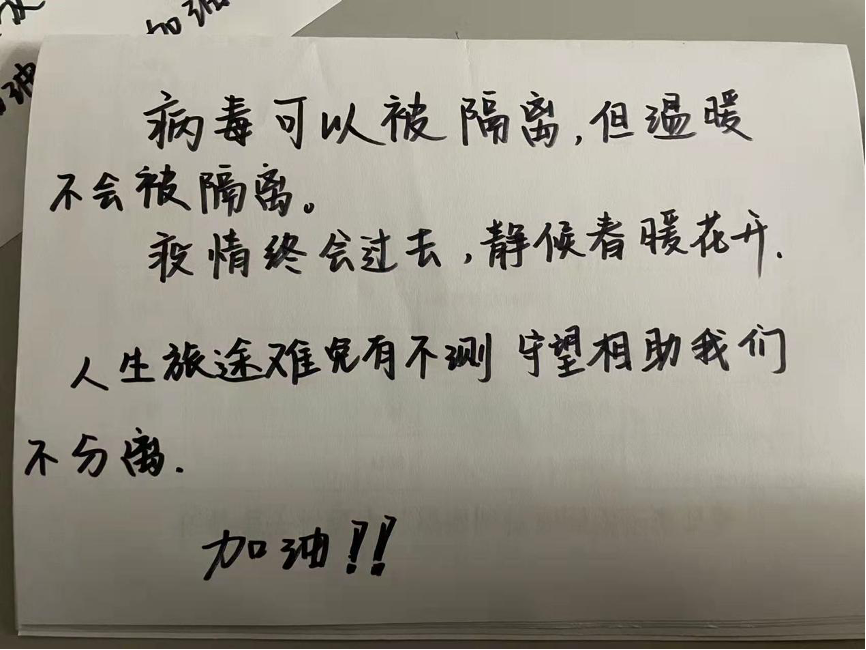 加油
加油
病毒可以被隔离,但温暖
不会被隔离。
疫情终会过去,静候春暖花开.
人生旅途难免有不测 守望相助我们
不分离.
加油!!